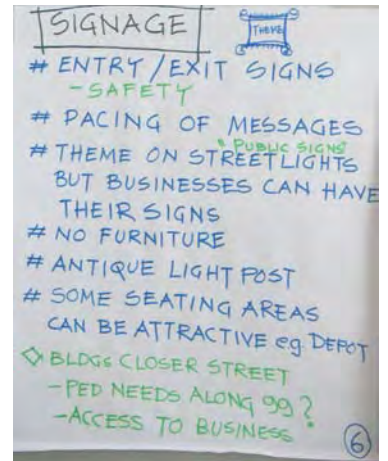 SIGNAGE
THEME
# ENTRY/EXIT SIGNS
- SAFETY
# PACING OF MESSAGES
# THEME ON STREETLIGHTS
& PUBLIC SIGNS
BUT BUSINESSES CAN HAVE
THEIR SIGNS
# NO FURNITURE
# ANTIQUE LIGHT POST
# SOME SEATING AREAS
CAN BE ATTRACTIVE eg. DEPOT
◇ BLDGS CLOSER STREET
- PED NEEDS ALONG 99?
- ACCESS TO BUSINESS
6